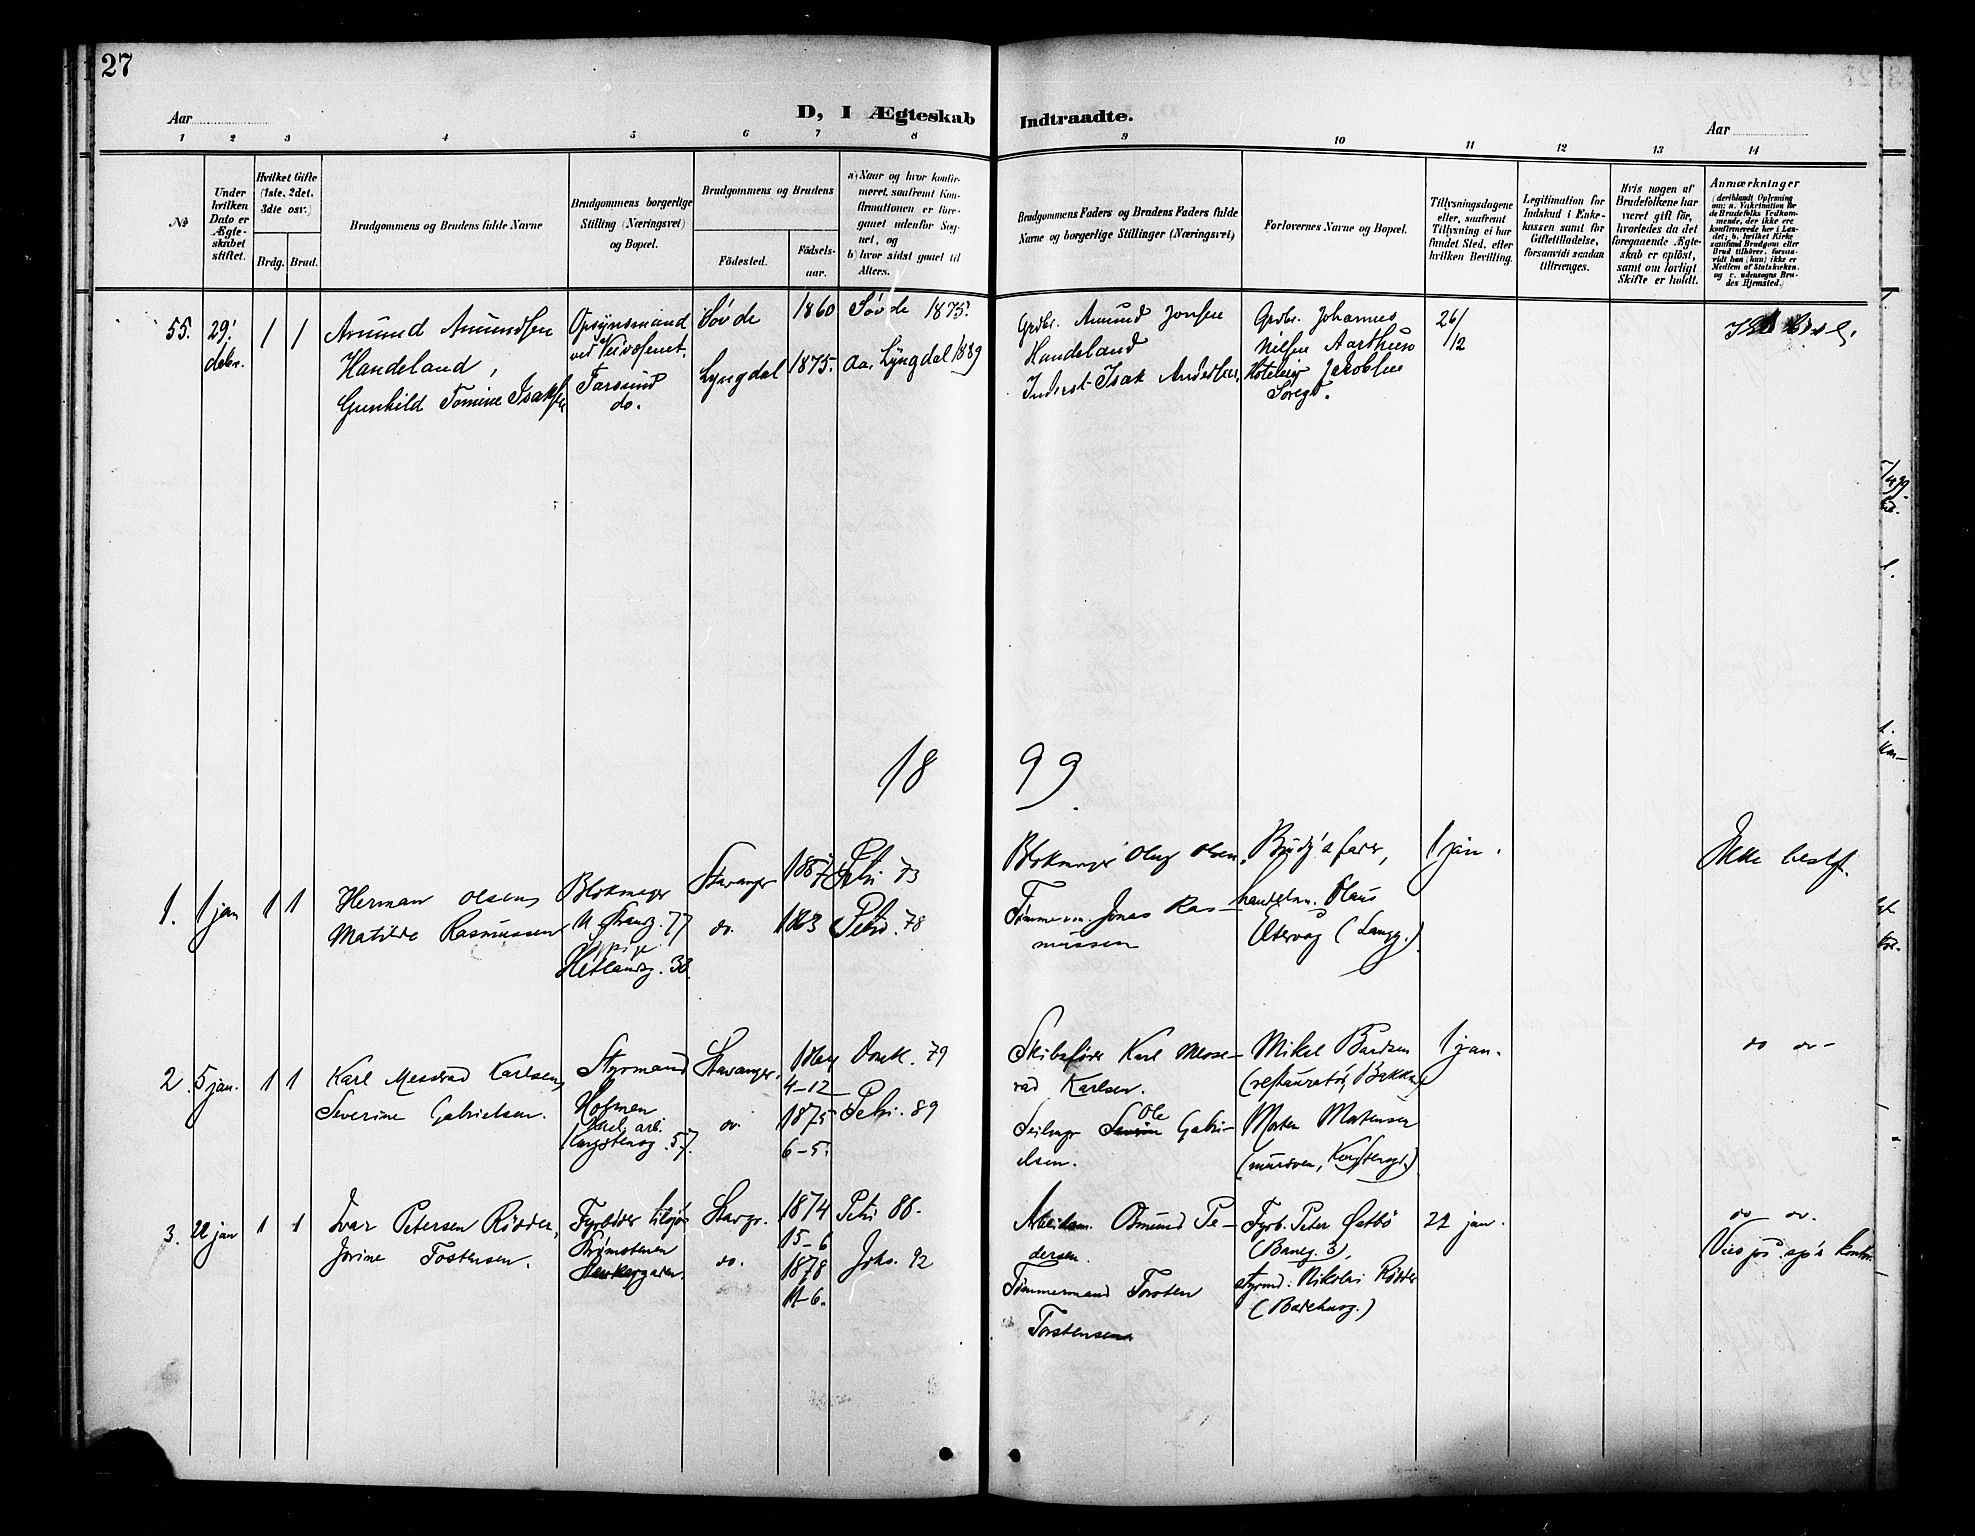 27
D, I Ægteskab Indtraadte.
Aar
Aar
1 2 3 4 5 6 7 8 9 10 11 12 13 14
No
Under hvilken Dato er Ægteskabet stiftet.
Hvilket Gifte (1ste, 2det, 3die osv.)
Brdg. Brud.
Brudgommens og Brudens fulde Navne
Brudgommens borgerlige Stilling (Næringsvei) og Bopæl.
Brudgommens og Brudens
Födested.
Födselsaar.
a) Naar og hvor konfirmeret, saafremt Konfirmationen er foregaaet udenfor Sognet, og
b) hvor sidst gaaet til Alters.
Brudgommens Faders og Brudens Faders fulde Navne og borgerlige Stillinger (Næringsvei)
Forlovernes Navne og Bopæl.
Tillysningsdagene eller, saafremt Tillysning ei har fundet Sted, efter hvilken Bevilling.
Legitimation for Indskud i Enkekassen samt for Giftetilladelse, forsaavidt saadan tiltrænges.
Hvis nogen af Brudefolkene har været gift för, hvorledes da det foregaaende Ægteskab er oplöst, samt om lovligt Skifte er holdt.
Anmærkninger (deriblandt Oplysning om: a. Vakcination for de Brudefolks Vedkommende, der ikke ere konfirmerede her i Landet; b. hvilket Kirkesamfund Brudgom eller Brud tilhörer, forsaavidt han (hun) ikke er Medlem af Statskirken, og c. udensogns Brudes Hjemsted.)
55. 29' decbr. 1 1
Amund Amundsen
Handeland,
Gunhild Tomine Isaks
Opsynsmand
ved Veivæsenet.
Farsund
do.
Søvde 1860 Søvde 1875.
Lyngdal 1875. aa. Lyngdal 1889
Grdbr. Amund Jonsen
Handeland
Inderst Isak Andersen,
Grdbr. Johannes
Nilsen Aarthun
Jakobsen
26/12
1899
1. 1 jan 1 1
Herman Olsen
Matilde Rasmussen
Blokmager
N Strandg. 77
Hetlandsg. 30
Stavanger
do.
1863
Petri 73
Petri 78
Blokmager Oluf Olsen
Tømmerm. Jonas Rasmussen
Brudg's fader,
handelsm. Olaus
(Langg.)
1 jan.
Ikke beslgt.
2. 5 jan. 1 1
Karl Messerad Karlsen,
Severine Gabrielsen.
Styrmand
Holmen
Kongstensg. 57.
Stavanger,
do.
4-12
1875
6-5.
Domk. 79
Petri. 89
Skibsfører Karl Messerad Karlsen.
Ole Gabrielsen.
Mikal Bardsen
(restauratør, Bakken)
Morten Mortensen
(murersven, Kongstensgt.)
1 jan.
do do
3. 22 jan 1 1
Ivar Petersen Rödder,
Jorine Tostensen.
Fyrbøder tilsjøs
Strømstenen
Stavgr.
do.
1874
15-6
1878
11-6.
Petri 88.
Joh. 92
Arbeidsm. Osmund Pedersen.
Tømmermand Torsten
Torstensen
Fyrb. Peter Østbö
(Baneg. 3),
styrmd. Nikolai Rödder
(Badehusg.)
22 jan.
do do.
Vies på sp's kontor